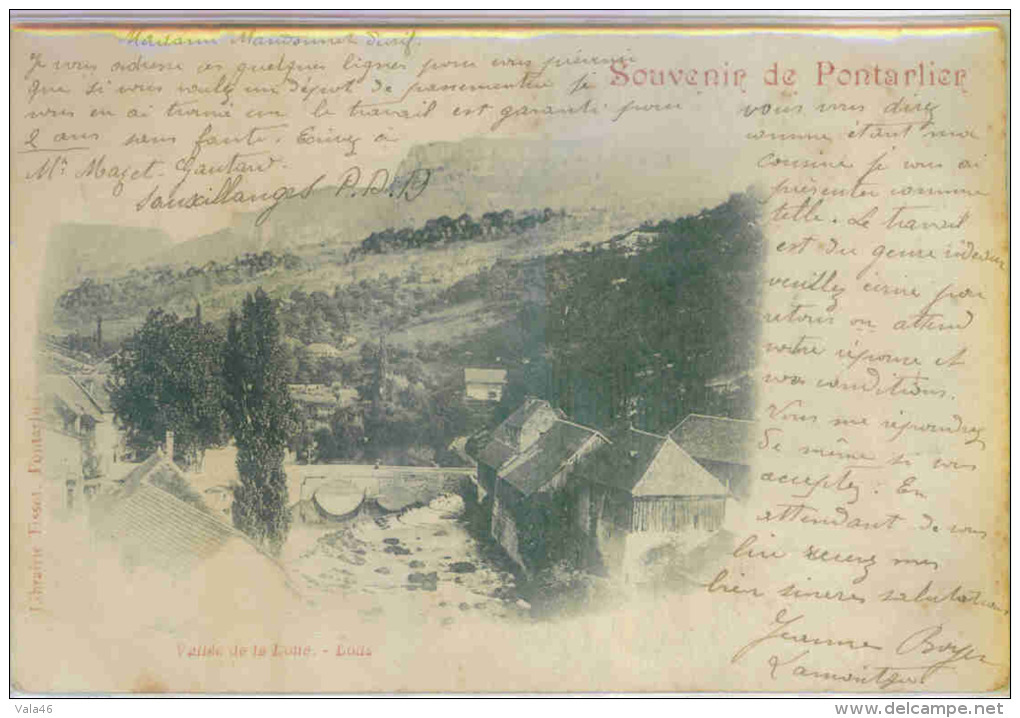 Madame Mandonnet Dusif.
Je vous adresse ces quelques lignes pour vous prévenir
que si vous voulez un dépot de passementerie je
vous en ai trouvé un le travail est garanti pour
2 ans sans faute. Ecrivez à
Mr Mazet-Gautard
Sauxillanges P. D. D
Souvenir de Pontarlier
vous vous direz
comme étant ma
cousine je vous ai
présenter comme
telle. Le travail
est du genre rideaux
veuillez écrire par
retour on attend
votre réponse et
vos conditions.
Vous me répondrez
de même si vous
acceptez. En
attendant de vous
lire recevez mes
bien sincères salutations
Jeanne Boyer
Lamontgie
Librairie Tissot, Pontarlier
Vallée de la Loue. - Lods
Vala46
http://www.delcampe.net